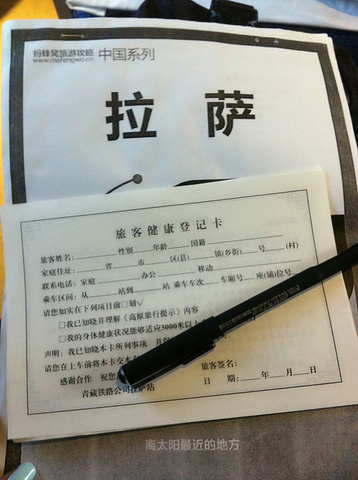 蚂蜂窝旅游攻略 中国系列
www.mafengwo.cn
拉 萨
旅客健康登记卡
旅客姓名:________性别____年龄____国籍________
家庭住址:______省______市______区(县)______镇(乡/街)____号____(村)
联系电话:家庭________办公________移动________
乘车区间:从______站到______站 乘车车次____车厢号__座(铺)位号__
请您如实在下列项目前□划√
□我已知晓并理解《高原旅行提示》内容
□我的身体健康状况能够适应3000米以上
声明:我已知晓本卡所列事项
请您在上车前将本卡交本
感谢合作 祝您
旅客签名
青藏铁路公司拉萨站
日 期:____年__月__日
离太阳最近的地方